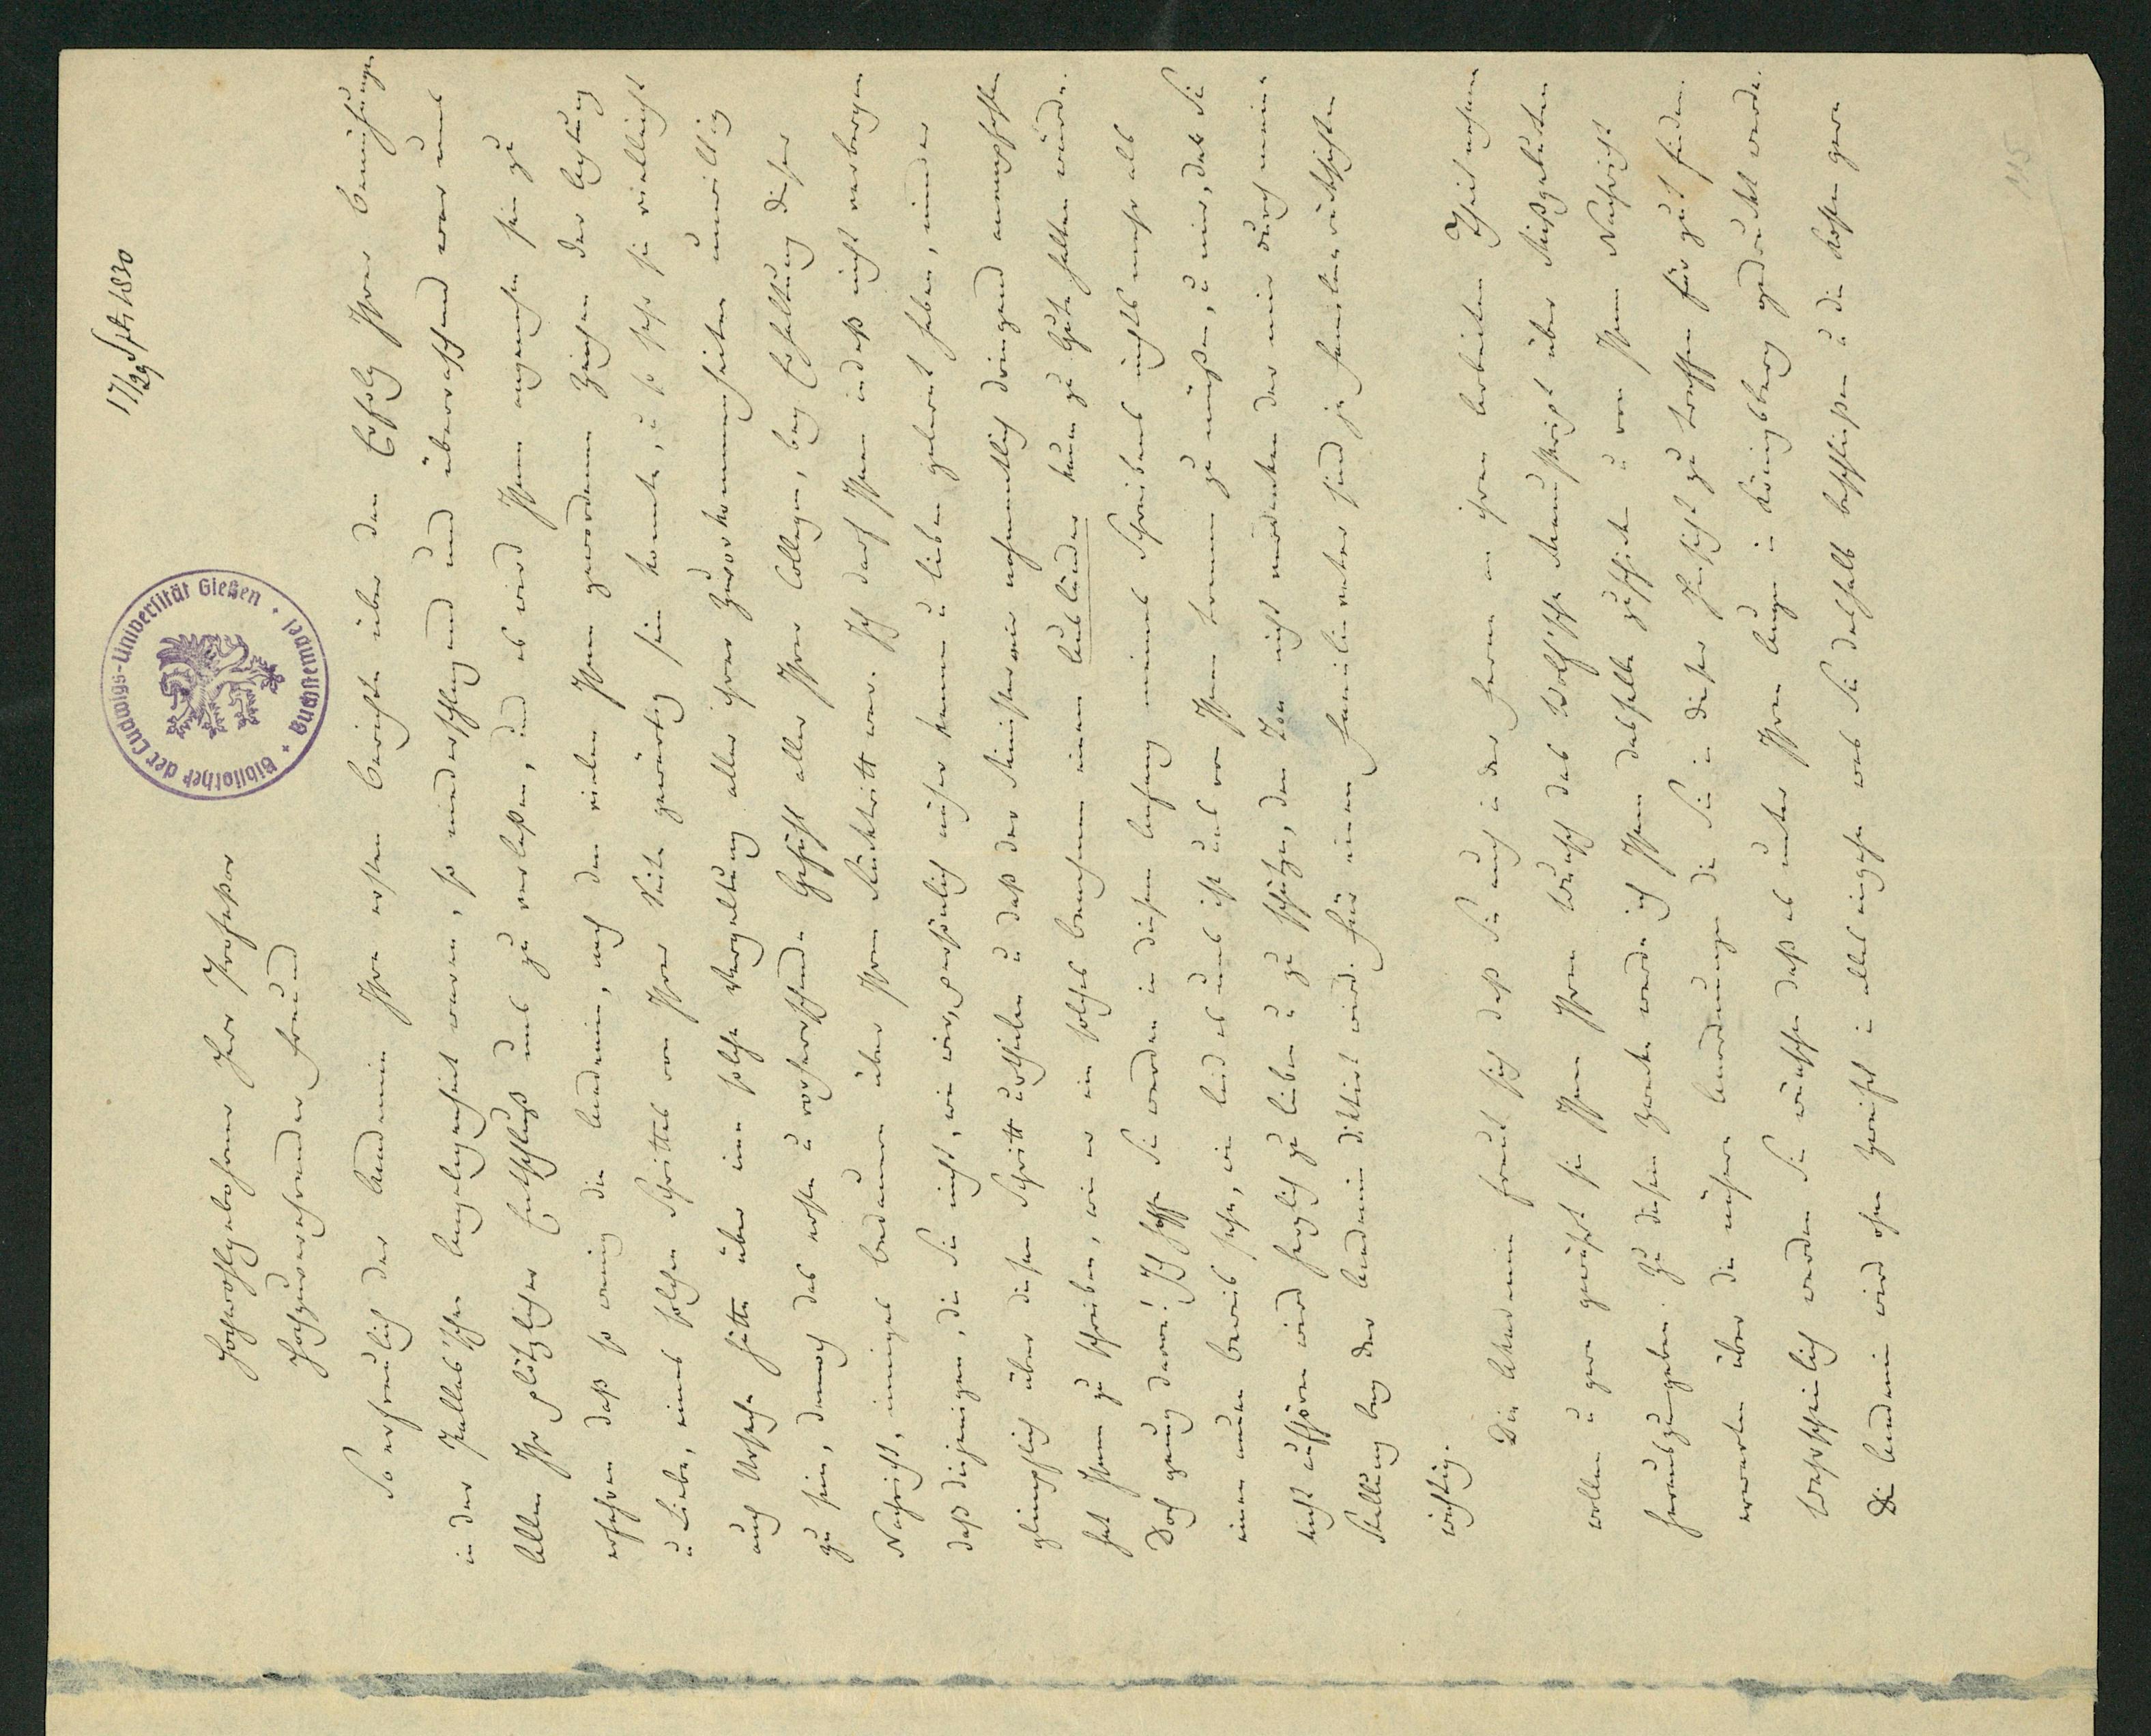 17/29 Spt. 1830
Bibliothek der Ludwigs-Universität Gießen · Buchstempel
Hochwohlgebohrner Herr Professor
Hochzuverehrender Freund
So erfreulich der Academie Ihre ersten Berichte über den Erfolg Ihrer Bemühungen
in der Pallas'schen Angelegenheit waren, so niederschlagend und überraschend war uns
Allen Ihr plötzlicher Entschluß uns zu verlaßen, und es wird Ihnen angenehm sein zu
erfahren daß so wenig die Academie, nach den vielen Ihnen gewordenen Zeichen der Achtung
u Liebe, eines solchen Schrittes von Ihrer Seite gewärtig sein konnte, u so sehr sie vielleicht
auch Ursache hätte über eine solche Vergeltung aller ihrer Zuvorkommenheiten unwillig
zu sein, dennoch das erste u vorherrschende Gefühl aller Ihrer Collegen, bey Erhaltung dieser
Nachricht, inniges Bedauern über Ihren Rücktritt war. Ich darf Ihnen indeß nicht verbergen
daß diejenigen, die Sie nicht, wie wir, persönlich näher kennen u lieben gelernt haben, minder
glimpflich über diesen Schritt urtheilen u daß der Minister mir nahmentlich dringend anempfohlen
hat Ihnen zu schreiben, wie er ein solches Benehmen einem Ausländer kaum zu Gute halten würde.
Doch genug davon! Ich hoffe Sie werden in diesem Anfang meines Schreibens nichts mehr als
einen neuen Beweis sehn, wie leid es uns ist uns von Ihnen trennen zu müßen, u mir, daß Sie
nicht aufhören wird herzlich zu lieben u zu schätzen, den Ton nicht verdenken der mir durch meine
Stellung bey der Academie diktirt wird. Für einen Familienvater sind ja Familienrücksichten
wichtig.
Die Akademie freut sich daß Sie auch in der Ferne an ihren Arbeiten Theil nehmen
wollen u gern gewährt sie Ihnen Ihren Wunsch das Wolff'sche Manuskript über Mißgeburten
herauszugeben. Zu diesem Zwecke werde ich Ihnen dasselbe zuschicken u von Ihnen Nachricht
erwarten über die nähern Anordnungen die Sie in dieser Hinsicht zu treffen für gut finden.
Wahrscheinlich werden Sie wünschen daß es unter Ihren Augen in Königsberg gedruckt werde.
Die Academie wird ohne Zweifel in alles eingehn was Sie deshalb beschließen u die Kosten gern